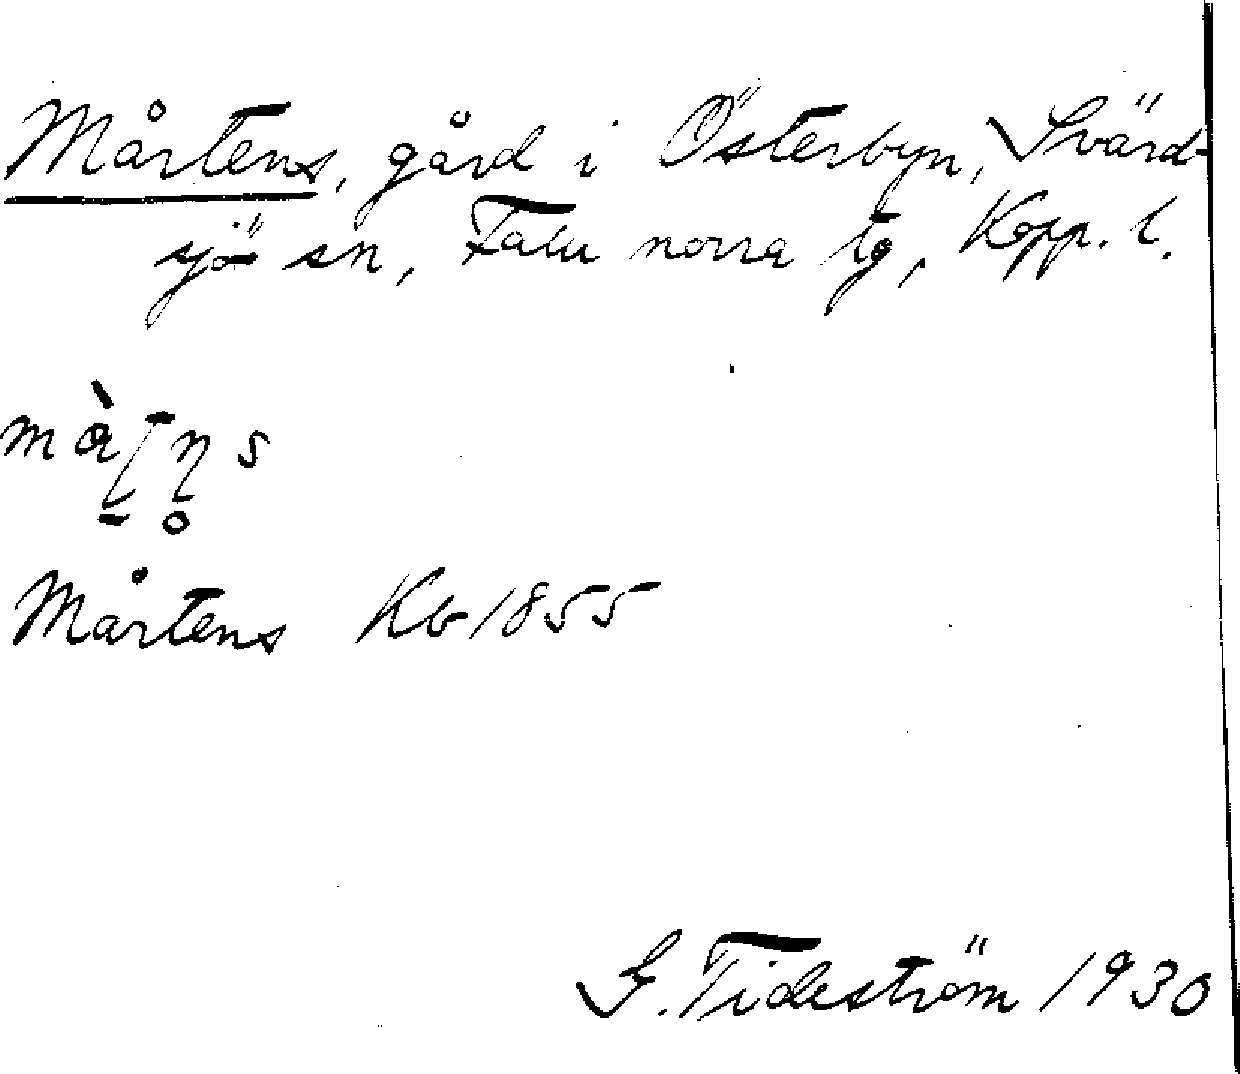 Mårtens, gård i Österbyn, Svärd-
sjö sn, Falu norra tg, Kopp. l.
Mårtens Kb 1855
G. Tideström 1930